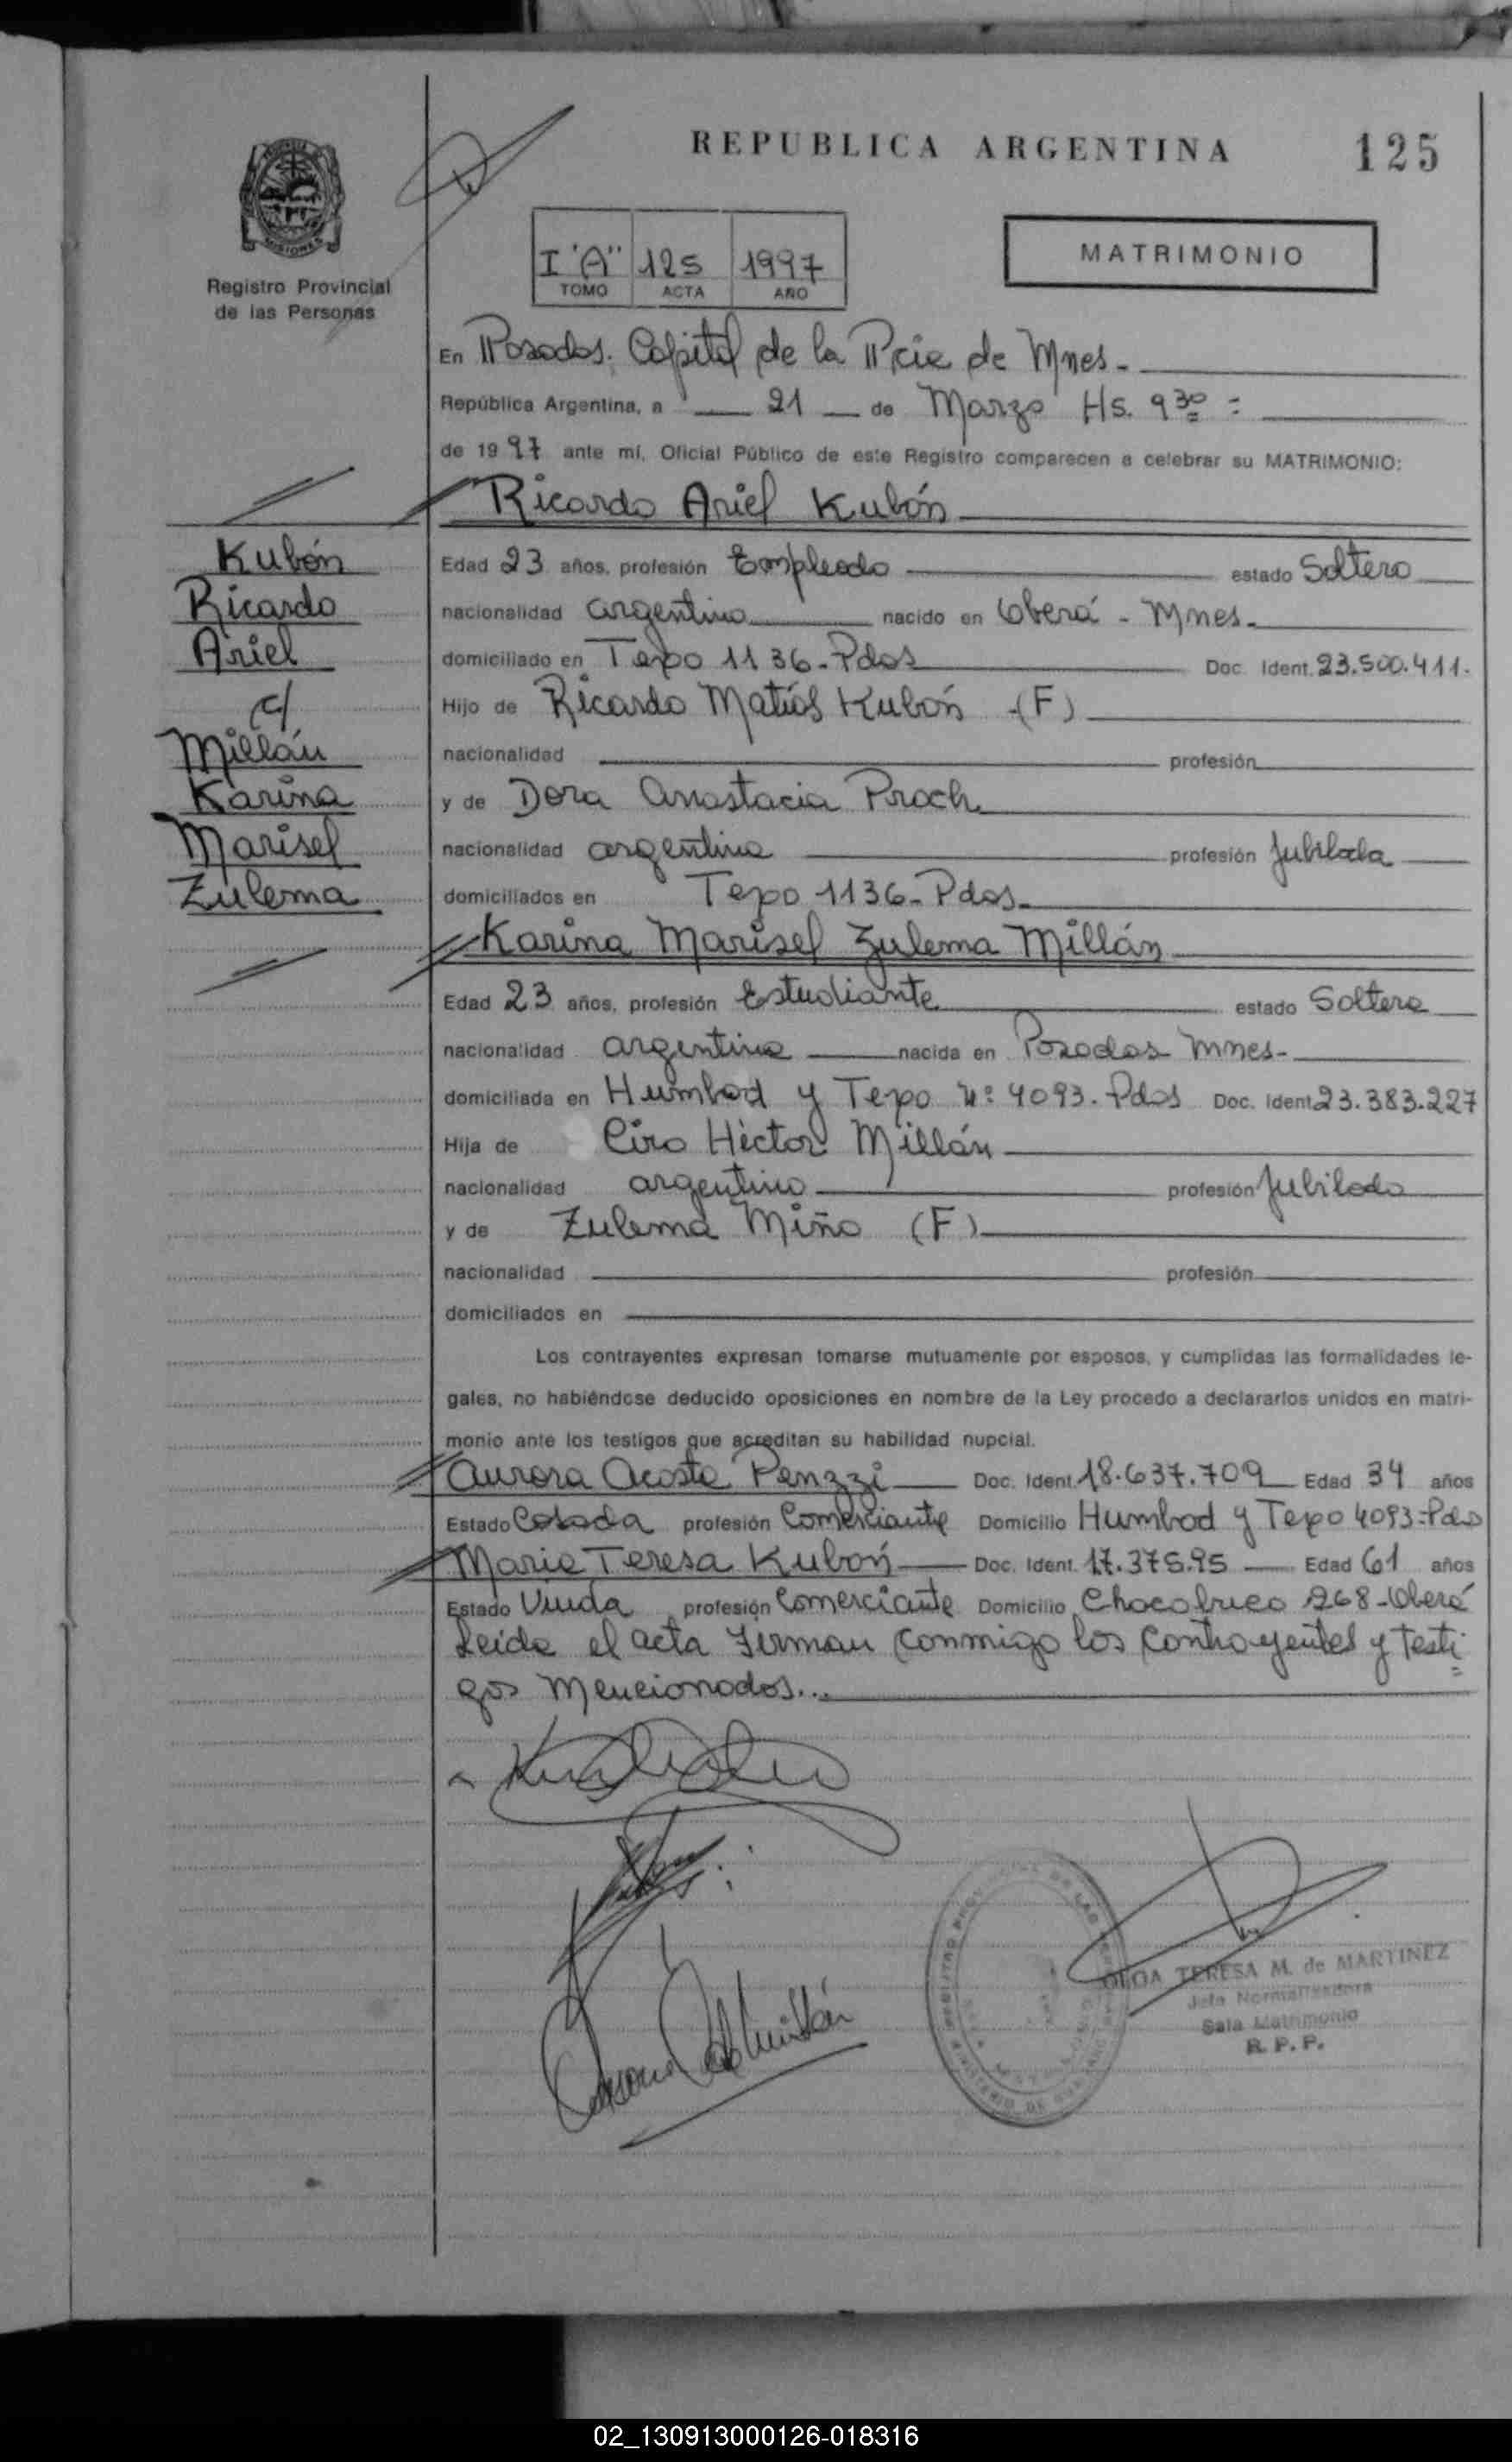 REPUBLICA ARGENTINA
125
Registro Provincial
de las Personas
MISIONES
I "A" 125 1997
TOMO ACTA AÑO
MATRIMONIO
En Posadas. Capital de la Pcia de Mnes.
República Argentina, a 21 de Marzo Hs. 9 30
de 1997 ante mí, Oficial Público de este Registro comparecen a celebrar su MATRIMONIO:
Ricardo Ariel Kubón
Kubón
Ricardo
Ariel
c/
Millán
Karina
Marisel
Zulema
Edad 23 años, profesión Empleado estado Soltero
nacionalidad argentino nacido en Oberá - Mnes.
domiciliado en Terpo 1136 - Pdas Doc. Ident. 23.500.411.
Hijo de Ricardo Matías Kubón (F)
nacionalidad profesión
y de Dora Anastacia Proch
nacionalidad argentina profesión Jubilada
domiciliados en Terpo 1136 - Pdas.
Karina Marisel Zulema Millán
Edad 23 años, profesión Estudiante estado Soltera
nacionalidad argentina nacida en Posadas Mnes.
domiciliada en y N: 4093. Pdas Doc. Ident. 23.383.227
Hija de Ciro Héctor Millán
nacionalidad argentino profesión Jubilado
y de Zulema Miño (F)
nacionalidad profesión
domiciliados en
Los contrayentes expresan tomarse mutuamente por esposos, y cumplidas las formalidades le-
gales, no habiéndose deducido oposiciones en nombre de la Ley procedo a declararlos unidos en matri-
monio ante los testigos que acreditan su habilidad nupcial.
Aurora Acosta Penzzi Doc. Ident. 18.637.709 Edad 34 años
Estado Casada profesión Comerciante Domicilio y 4093 - Pdas
Maria Teresa Kubón Doc. Ident. 17.375.95 Edad 61 años
Estado Viuda profesión Comerciante Domicilio Chacabuco 268 - Oberá
Leida el acta firman conmigo los contrayentes y testi
gos mencionados...
TERESA M. de MARTINEZ
Jefa Normalizadora
Sala Matrimonio
R. P. P.
02_130913000126-018316